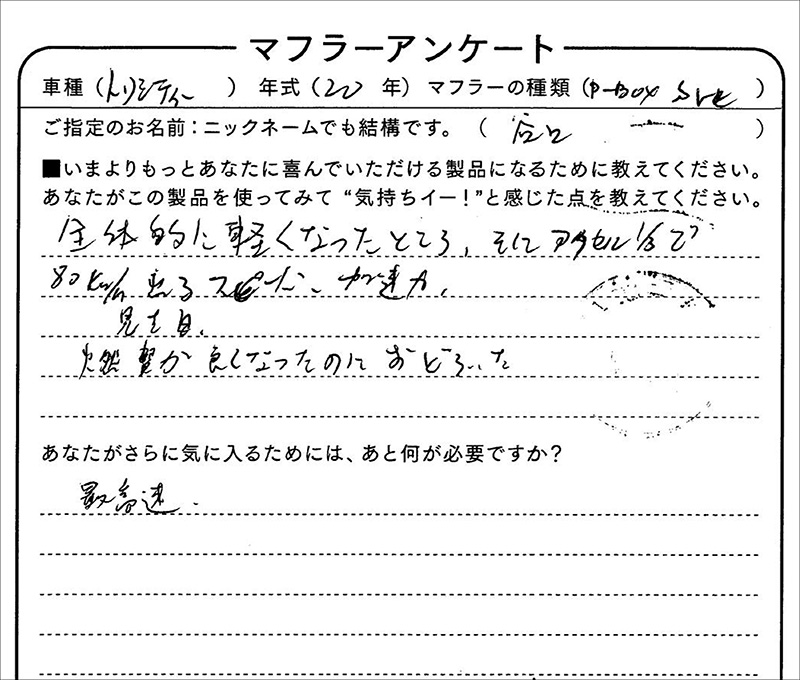 マフラーアンケート
車種(トリシティー) 年式(20 年) マフラーの種類(P-BOX )
ご指定のお名前:ニックネームでも結構です。( )
■いまよりもっとあなたに喜んでいただける製品になるために教えてください。
あなたがこの製品を使ってみて“気持ちイー!”と感じた点を教えてください。
全体的に軽くなったところ、そしてアクセル1/3で
80km/h出るスピード、加速力、
見た目、
燃費が良くなったのにおどろいた
あなたがさらに気に入るためには、あと何が必要ですか?
最高速.